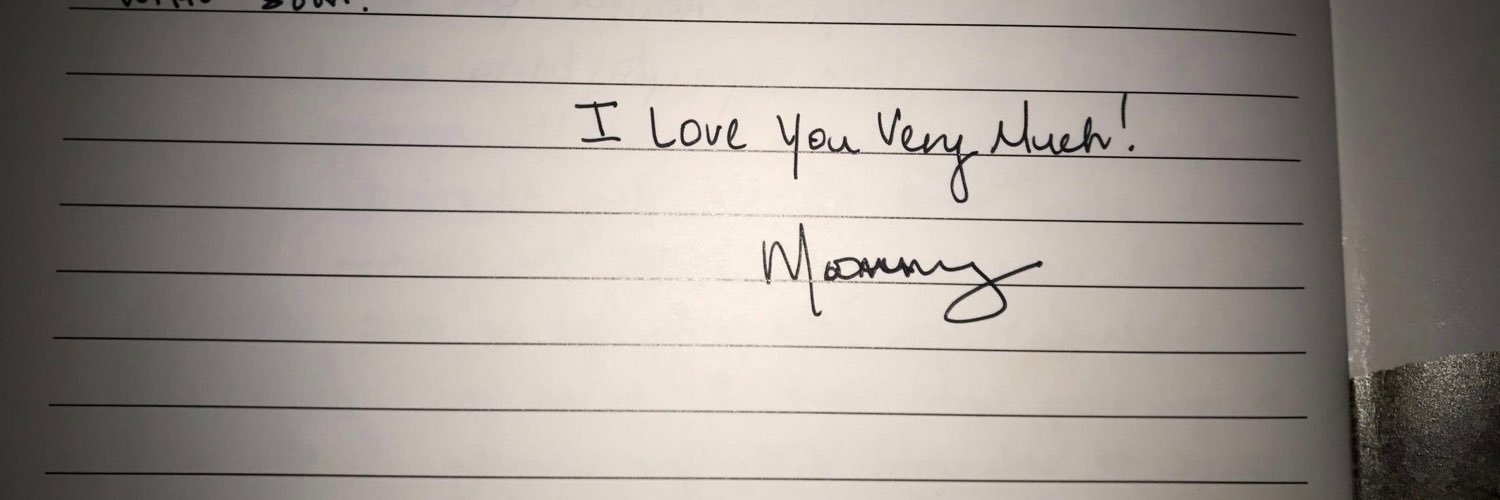 I Love You Very Much!
Mommy